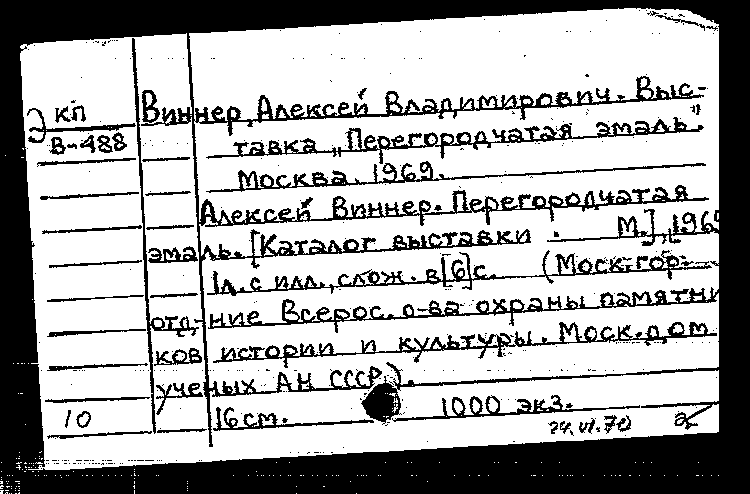 КП
В-488
Виннер, Алексей Владимирович. Выс-
тавка „Перегородчатая эмаль".
Москва. 1969.
Алексей Виннер. Перегородчатая
эмаль. [Каталог выставки . М.], 1969
1л. с илл., слож. в [6] с. (Моск. гор.
отд-ние Всерос. о-ва охраны памятни
ков истории и культуры. Моск. дом
ученых АН СССР).
10 16 см. 1000 экз.
24.VI.70